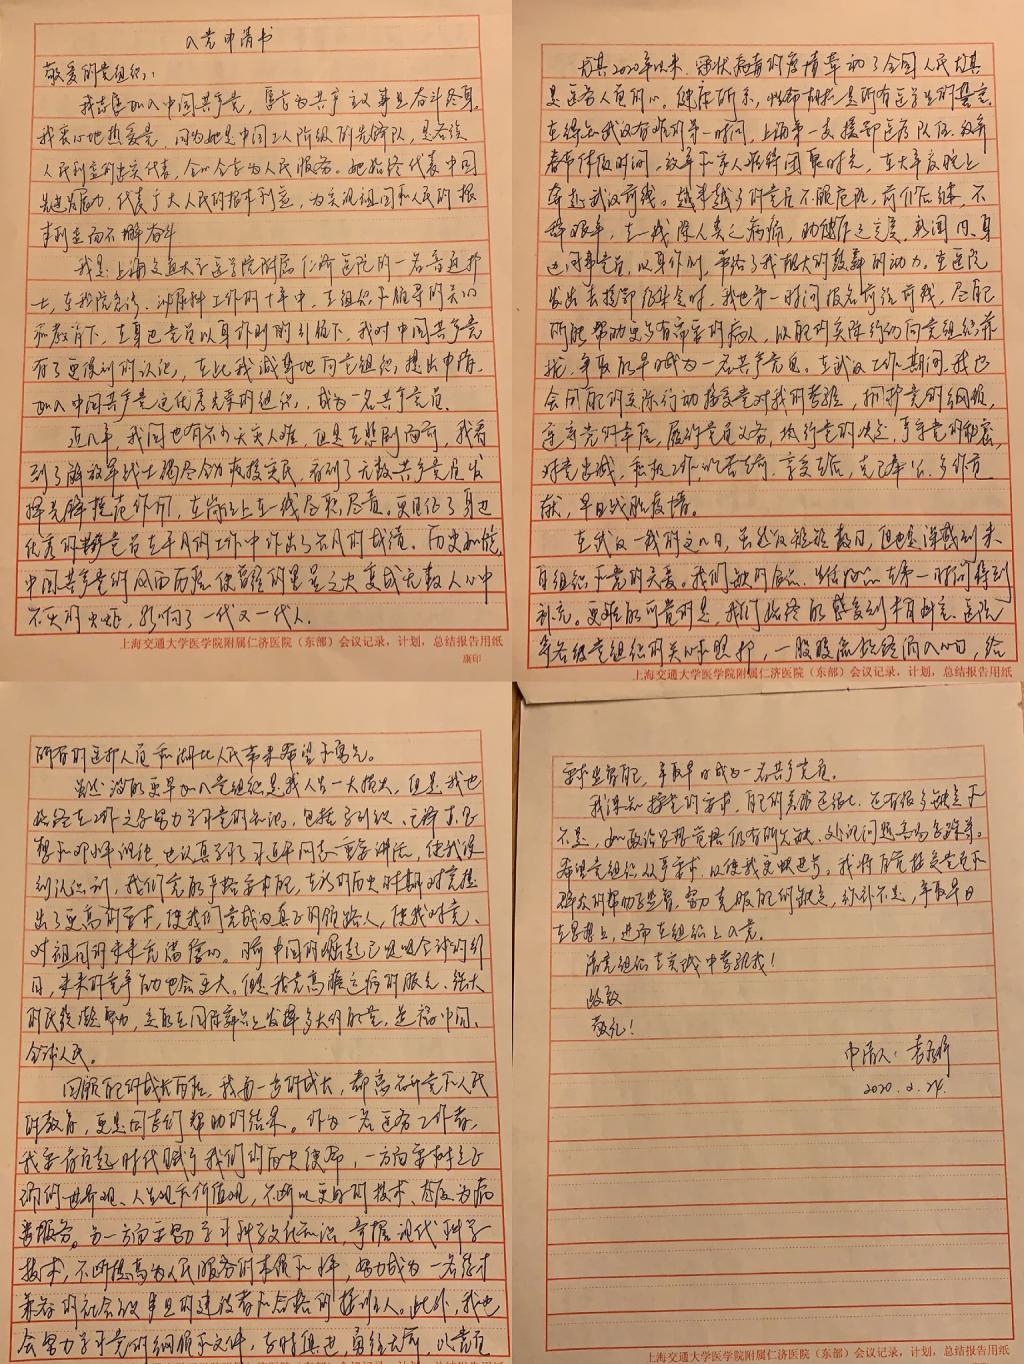 入党申请书
敬爱的党组织：
我志愿加入中国共产党，愿为共产主义事业奋斗终身。
我衷心地热爱党，因为她是中国工人阶级的先锋队，是各族
人民利益的忠实代表，全心全意为人民服务。她始终代表中国
先进生产力，代表广大人民的根本利益，为实现祖国和人民的根
本利益而不懈奋斗
我是上海交通大学医学院附属仁济医院的一名普通护
士，在我院急诊、泌尿科工作的十年中，在组织和领导的关心
和教育下，在身边党员以身作则的引领下，我对中国共产党
有了更深刻的认识，在此我诚挚地向党组织提出申请，
加入中国共产党这优秀光荣的组织，成为一名共产党员。
近几年，我国也有不少天灾人难，但是在悲剧面前，我看
到了解放军战士竭尽全力救援灾民，看到了无数共产党员发
挥先锋模范作用，在岗位上在一线尽职尽责。更见证了身边
优秀的党员在平凡的工作中作出了不凡的成绩。历史如镜，
中国共产党的风雨历程使
星星之火变成无数人心中
不灭的火炬，影响了一代又一代人。
上海交通大学医学院附属仁济医院（东部）会议记录，计划，总结报告用纸
康印
尤其2020年以来，冠状病毒的疫情牵动了全国人民尤其
是医务人员的心。健康所系，性命相托是所有医学生的
在得知武汉有难的第一时间，上海第一支援鄂医疗队伍，放弃
春节休假时间，放弃和家人难得团聚时光，在大年夜晚上
奔赴武汉前线。越来越多的党员不顾危机，前仆后继，不
辞艰辛，在一线除人类之病痛，助健康之完美，新闻内、身
边同事党员，以身作则，带给了我极大的鼓舞的动力。在医院
发出去援鄂
时，我也第一时间报名前往前线，尽自己
所能帮助更多有需要的病人，以自己的实际行动向党组织靠
拢，争取早日成为一名共产党员。在武汉工作期间，我也
会用自己的实际行动接受党对我的考验，拥护党的纲领，
遵守党的章程，履行党员义务，执行党的决定，严守党的秘密，
对党忠诚，积极工作，吃苦在前，享受在后，克己奉公，多作贡
献，早日战胜疫情。
在武汉一线的这几日，虽然仅短短数日，但也是深感到来
自组织和党的关爱。我们缺的食品、生活物品在第一时间得到
补充。更难能可贵的是，我们始终能感受到来自
医院
等各级党组织的关心和照护，一股股
流入心田，给
上海交通大学医学院附属仁济医院（东部）会议记录，计划，总结报告用纸
所有的医护人员和湖北人民带来希望和曙光。
虽然没能更早加入党组织是我人生一大损失，但是我也
始终在工作之余努力学习党的知识，包括马列
、毛泽东思
想和邓小平理论，也认真学习了习近平同志重要讲话，使我深
刻认识到，我们党能严格要求自己，在新的历史时期对党提
出了更高的要求，使我们党成为真正的领路人，使我对党、
对祖国的未来充满信心。目前中国的崛起已是吸全球的引
目，未来的竞争
也会更大。但是我党高瞻远瞩的眼光、强大
的民族凝聚力，定能在国际舞台上发挥多大的能量，造福中国、
全球人民。
回顾自己的成长历程，我每一步的成长，都离不开党和人民
的教育，更是同志们帮助的结果。作为一名医务工作者，
我要肩负起时代赋予我们的历史使命，一方面要树立正
确的世界观、人生观和价值观，不断以更好的技术、态度为病
患服务。另一方面要努力学习科学文化知识，掌握现代科学
技术，不断提高为人民服务的本领和水平，努力成为一名德才
兼备的社会主义事业的建设者和合格的接班人。此外，我也
会努力学习党的纲领和文件，与时俱进，勇往无前，以党员
要求坐督自己，争取早日成为一名共产党员。
我深知按党的要求，自己的差距还很大，还有很多缺点和
不足，如政治思想觉悟仍有所欠缺、处理问题
希望党组织从严要求，以使我更快进步。我将自觉接受党员和
群众的帮助与监督，努力克服自己的缺点，弥补不足，争取早日
在思想上，进而在组织上入党。
请党组织在实践中考验我！
此致
敬礼！
申请人：
2020.2.24.
上海交通大学医学院附属仁济医院（东部）会议记录，计划，总结报告用纸